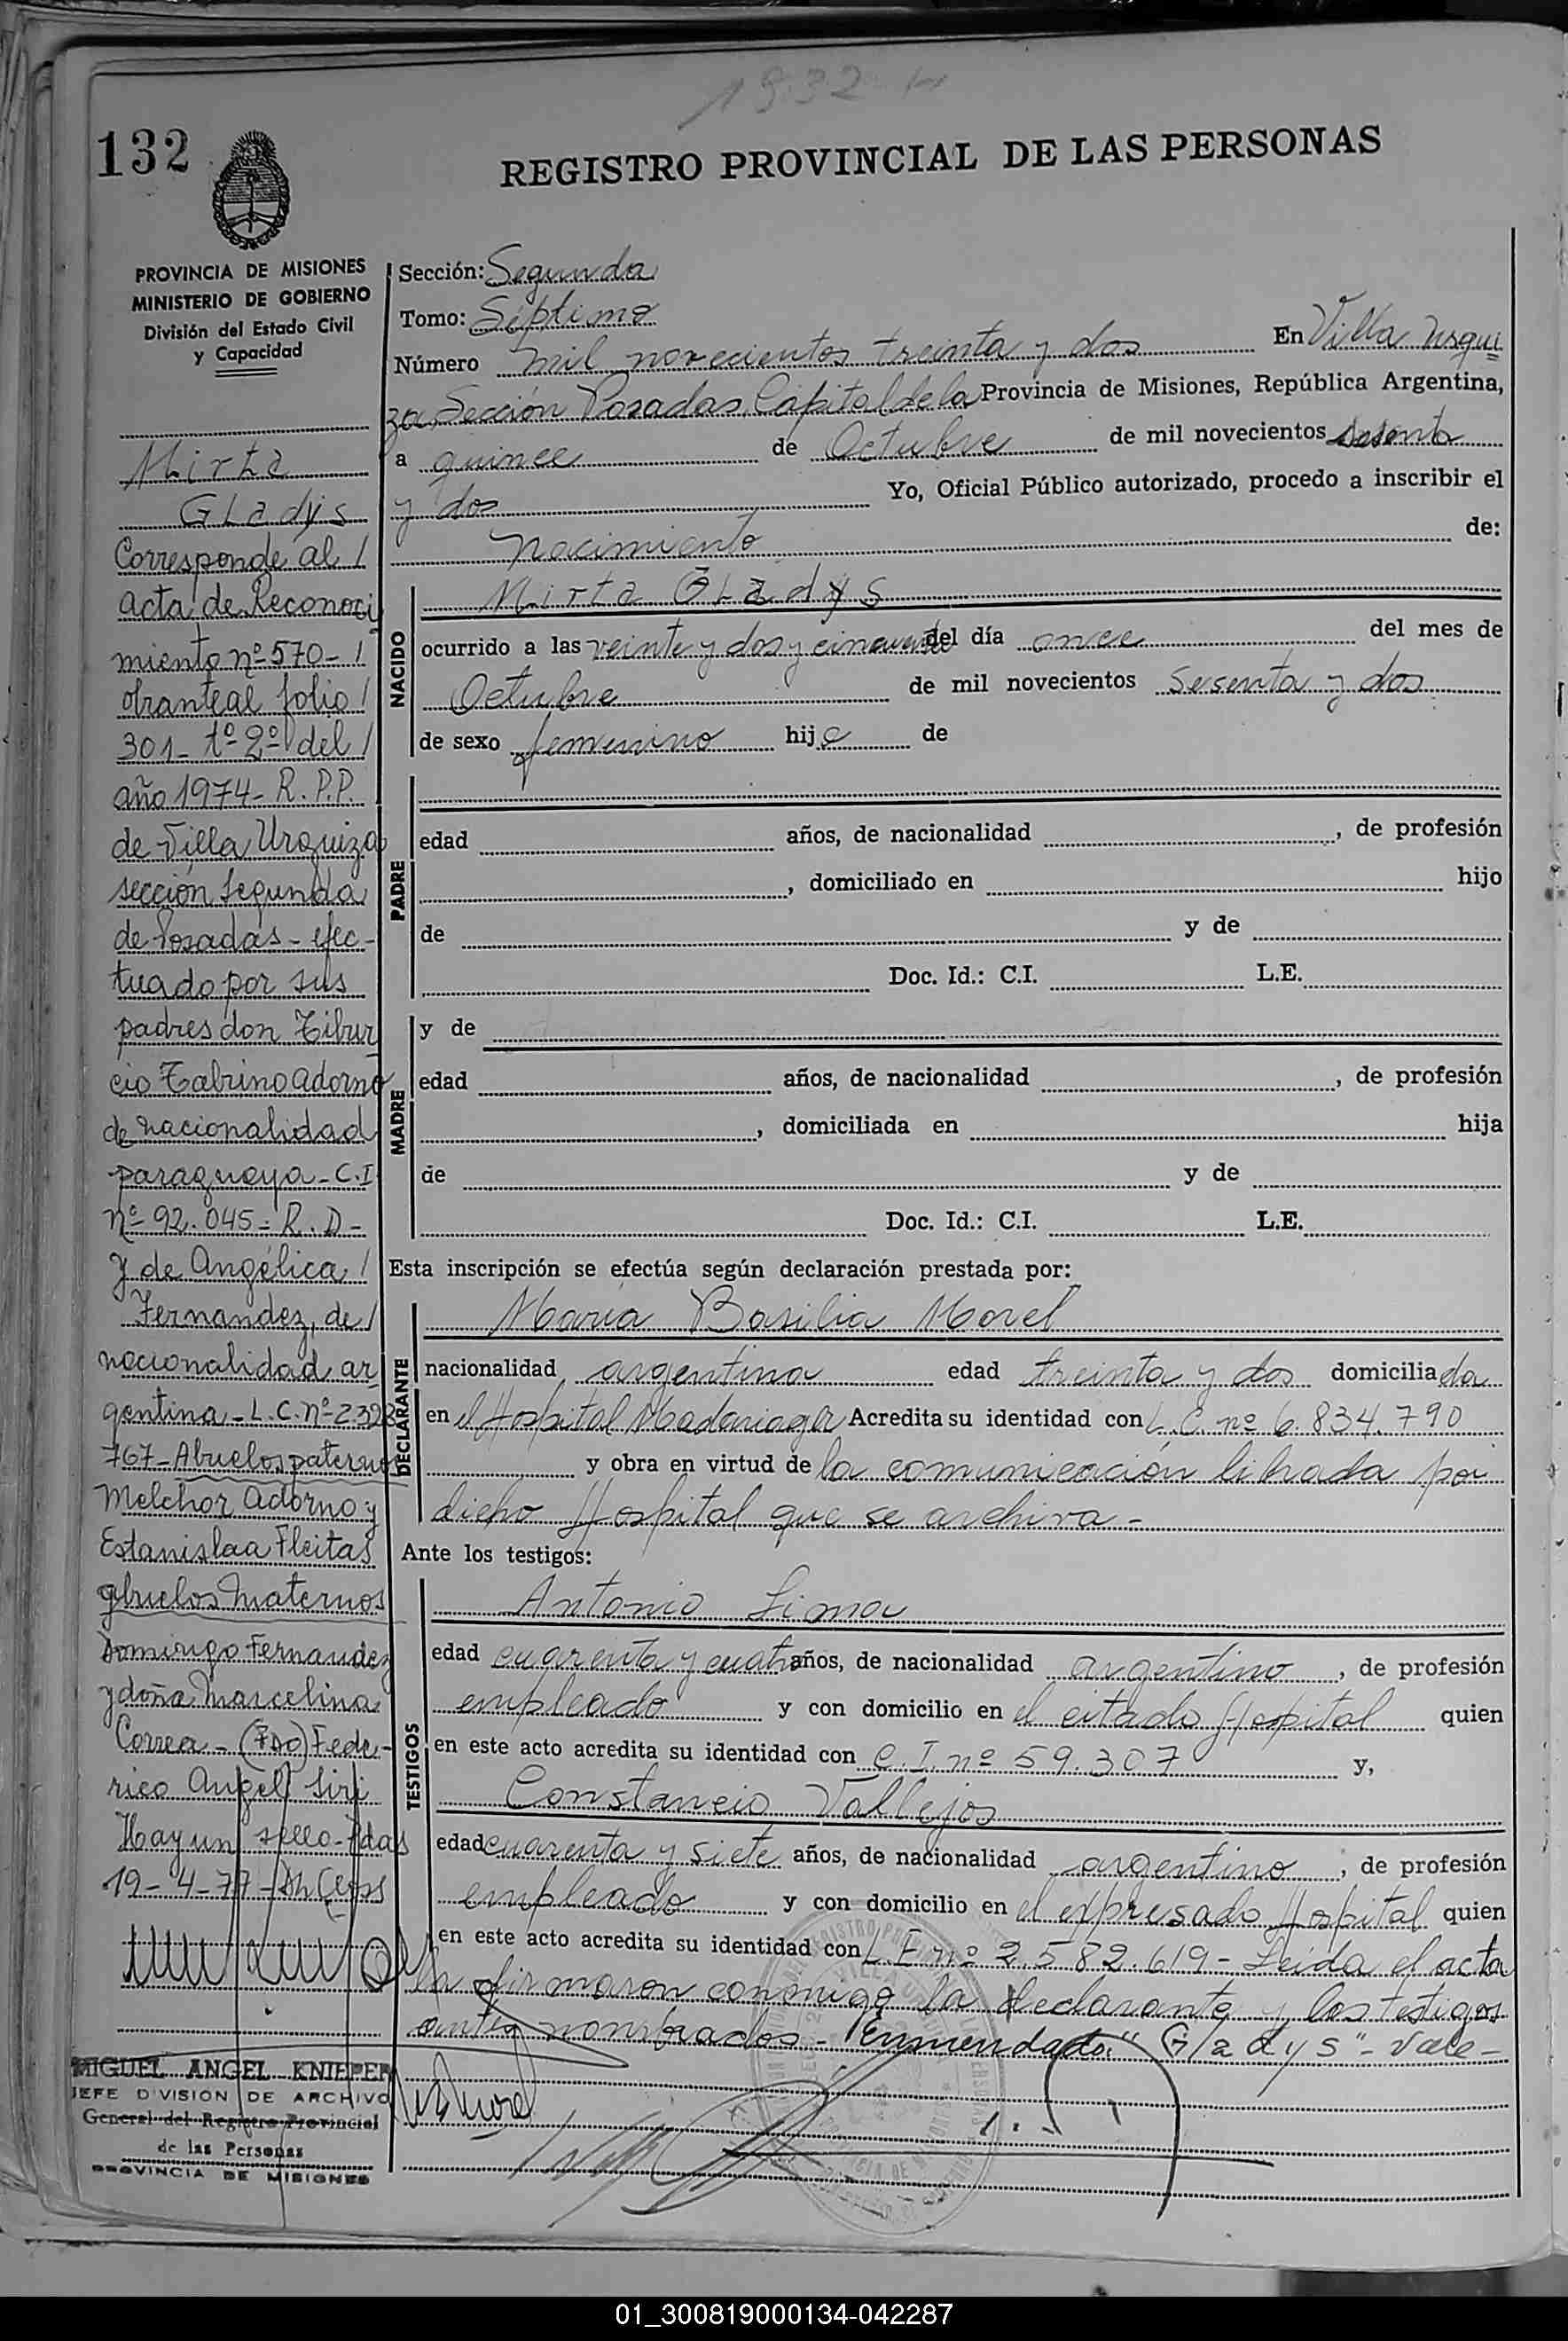 1932
132
REGISTRO PROVINCIAL DE LAS PERSONAS
PROVINCIA DE MISIONES
MINISTERIO DE GOBIERNO
División del Estado Civil
y Capacidad
Mirta
Gladys
Corresponde al /
acta de Reconoci
miento nº 570- /
obrante al folio /
301- tº 2º del /
año 1974- R.P.P.
de Villa Urquiza
sección segunda
de Posadas - efec-
tuado por sus
padres don Tibur
cio Tabrino Adorno
de nacionalidad
paraguaya - C.I
nº 92.045- R.D-
y de Angélica /
Fernandez, de /
nacionalidad ar
gentina - L.C. nº 2.392
767- Abuelos paternos
Melchor Adorno y
Estanislaa Fleitas
abuelos maternos
Domingo Fernandez
y doña Marcelina
Correa - (Fdo) Fede-
rico Angel Siri
Hay un sello - Pdas
19-4-77-
MIGUEL ANGEL KNIEPER
JEFE DIVISION DE ARCHIVO
General del Registro Provincial
de las Personas
PROVINCIA DE MISIONES
Sección: Segunda
Tomo: Séptimo
Número mil novecientos treinta y dos En Villa Urqui
za, Sección Posadas, Capital de la Provincia de Misiones, República Argentina,
a quince de Octubre de mil novecientos sesenta
y dos Yo, Oficial Público autorizado, procedo a inscribir el
nacimiento de:
NACIDO
Mirta Gladys
ocurrido a las veinte y dos y cincuenta del día once del mes de
Octubre de mil novecientos sesenta y dos
de sexo femenino hija de
PADRE
edad años, de nacionalidad , de profesión
, domiciliado en hijo
de y de
Doc. Id.: C.I. L.E.
MADRE
y de
edad años, de nacionalidad , de profesión
, domiciliada en hija
de y de
Doc. Id.: C.I. L.E.
Esta inscripción se efectúa según declaración prestada por:
DECLARANTE
María Basilia Morel
nacionalidad argentina edad treinta y dos domiciliada
en el Hospital Madariaga Acredita su identidad con L.C. nº 6.834.790
y obra en virtud de la comunicación librada por
dicho Hospital que se archiva -
Ante los testigos:
TESTIGOS
Antonio Lima
edad cuarenta y cuatro años, de nacionalidad argentino , de profesión
empleado y con domicilio en el citado Hospital quien
en este acto acredita su identidad con C.I. nº 59.307 y,
Constancio Vallejos
edad cuarenta y siete años, de nacionalidad argentino , de profesión
empleado y con domicilio en el expresado Hospital quien
en este acto acredita su identidad con L.E. nº 2.582.619 - Leída el acta
la firmaron conmigo la declarante y los testigos
antes nombrados - Enmendado: "Gladys" - Vale -
01_300819000134-042287